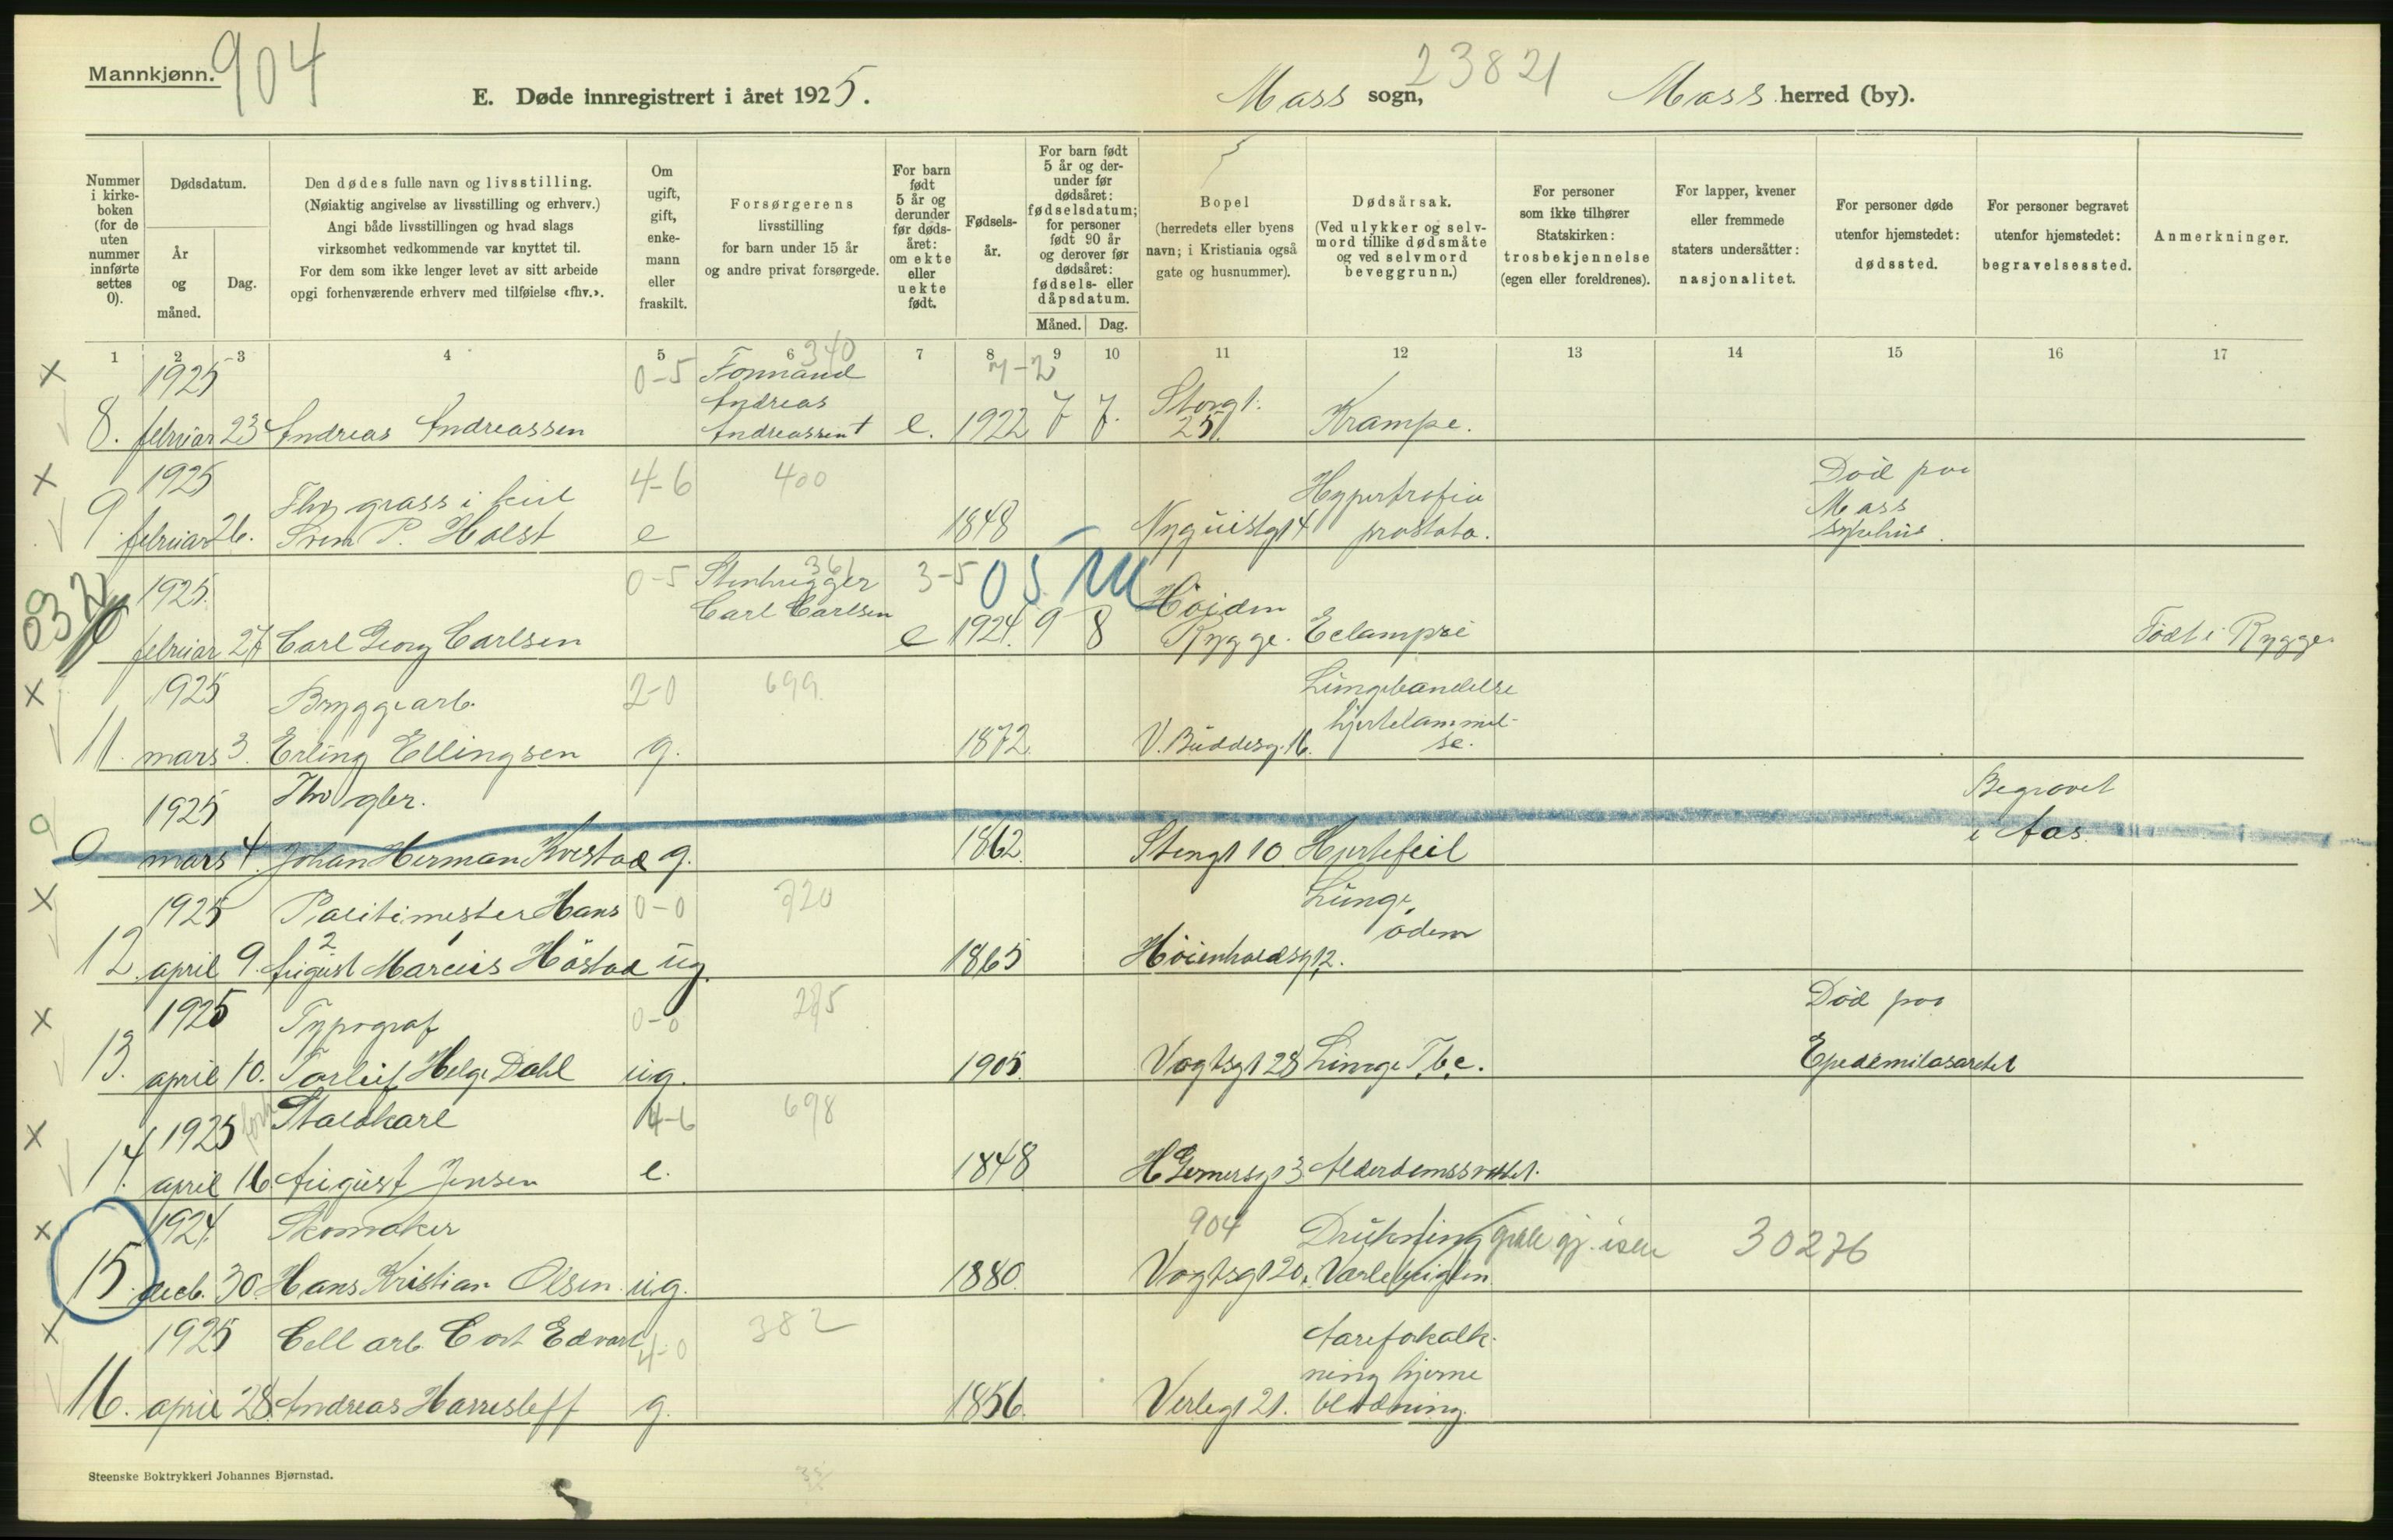 Mannkjønn.
904
E. Døde innregistrert i året 1925.
Mass sogn,
23821
Mass herred (by).
Nummer i kirke-boken (for de uten nummer innførte settes 0).
Dødsdatum.
År og måned.
Dag.
Den dødes fulle navn og livsstilling.
(Nøiaktig angivelse av livsstilling og erhverv.)
Angi både livsstillingen og hvad slags
virksomhet vedkommende var knyttet til.
For dem som ikke lenger levet av sitt arbeide
opgi forhenværende erhverv med tilføielse «fhv.».
Om ugift, gift, enke-mann eller fraskilt.
Forsørgerens
livsstilling
for barn under 15 år
og andre privat forsørgede.
For barn født 5 år og derunder før døds-året: om ekte eller uekte født.
Fødsels-år.
For barn født 5 år og der-under før dødsåret: fødselsdatum; for personer født 90 år og derover før dødsåret: fødsels- eller dåpsdatum.
Måned. Dag.
Bopel
(herredets eller byens
navn; i Kristiania også
gate og husnummer).
Dødsårsak.
(Ved ulykker og selv-
mord tillike dødsmåte
og ved selvmord
beveggrunn.)
For personer
som ikke tilhører
Statskirken:
trosbekjennelse
(egen eller foreldrenes).
For lapper, kvener
eller fremmede
staters undersåtter:
nasjonalitet.
For personer døde
utenfor hjemstedet:
dødssted.
For personer begravet
utenfor hjemstedet:
begravelsessted.
Anmerkninger.
1 2 3 4 5 6 7 8 9 10 11 12 13 14 15 16 17
1925 0-5 340 7-2
Andreas Storgt.
8. februar 23 Andreas Andreassen Andreassen † e. 1922 7 7. 25 Krampe.
1925 4-6 400 Hypertrofia Död paa
Mass
9. februar 26. P. Holst e 1848 Nyquistgt 4 prostata.
1925. 0-5 361 3-5
Carl Carlsen Höiden
februar 27 Carl Georg Carlsen e 1924. 9 8 Rygge. Eclampsi Födt i Rygge.
1925 Bryggearb. 2-0 699
11. mars 3. Erling Ellingsen g. 1872. V. Buddesg. 16. hjertelammel-
se.
1925 Begravet
0 mars 4. Johan Herman Kvestad g. 1862. Stengt 10 Hjertefeil i Aas.
1925 Politimester Hans 0-0 720 Lunge
ödem
12. april 9. August Marcus Höstad ug. 1865 12.
1925 Typograf 0-0 285 Död paa
13. april 10. Torleif Helge Dahl ug. 1905. Vogtsgt 28 Lunge Tbc. Epedemilasaretet
1925 forh Staldkarl 4-6 698
14. april 16 August Jensen e. 1848 H Gernersg 13
1924. Skomaker 904 Drukning gikk gj. isen 30276
15. decb. 30. Hans Kristian Olsen ug. 1880. Vogtsgt 20.
1925 Cell arb. Cort Edvard 4-0 382 Aareforkalk-
ning hjerne
16. april 28. Andreas Harresleff g. 1856. Verlegt 21. blødning.
Steenske Boktrykkeri Johannes Bjørnstad.